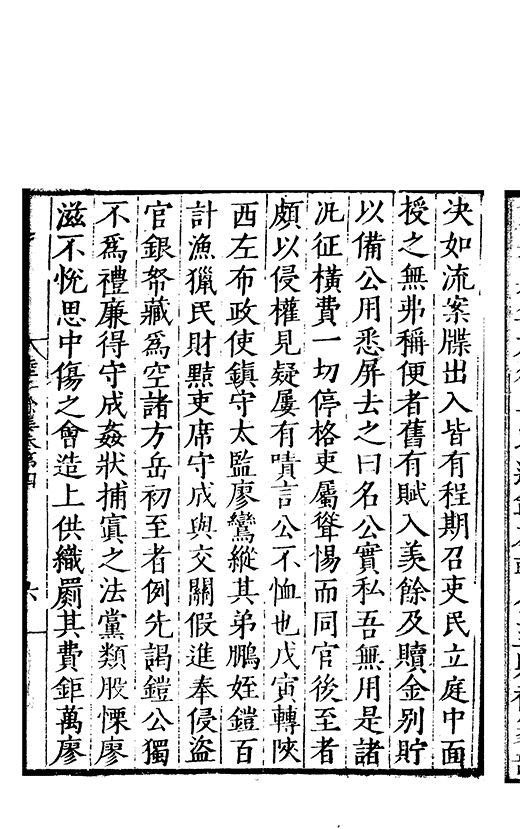 决如流案牒出入皆有程期召吏民立庭中面
授之無弗稱便者舊有賦入羡餘及贖金别貯
以備公用悉屏去之曰名公實私吾無用是諸
况征橫費一切停格吏屬聳惕而同官後至者
頗以侵權見疑屢有嘖言公不恤也戊寅轉陝
西左布政使鎮守太監廖鸞縱其弟鵬姪鎧百
計漁獵民財㸃吏席守成與交關假進奉侵盗
官銀帑藏為空諸方岳初至者例先謁鎧公獨
不為禮廉得守成姦狀捕寘之法黨類股慄廖
滋不悅思中傷之會造上供織罽其費鉅萬廖
六